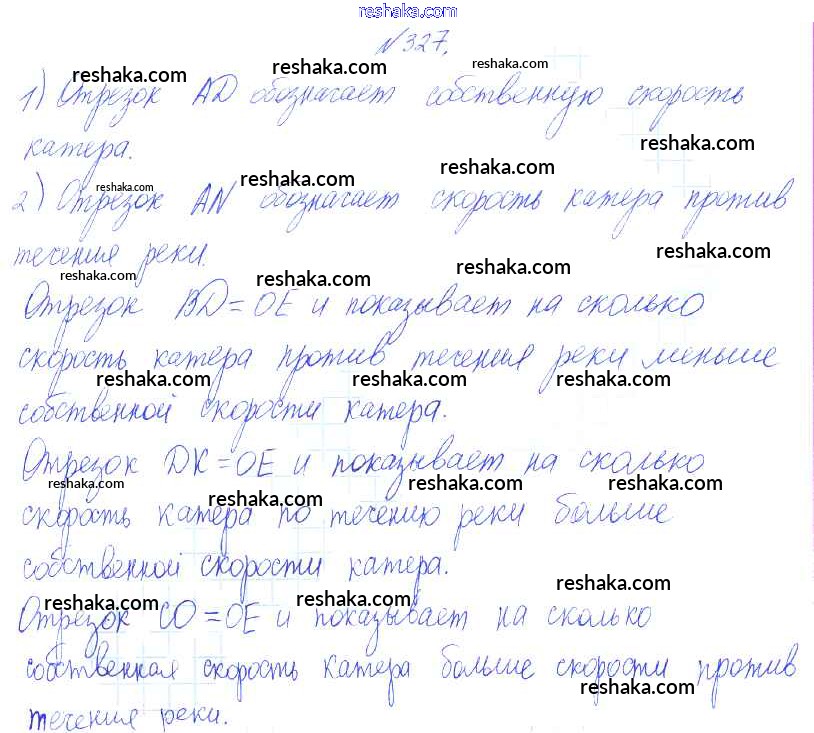 reshaka.com
№327.
reshaka.com reshaka.com reshaka.com
1) Отрезок AD обозначает собственную скорость
reshaka.com reshaka.com
катера.
reshaka.com reshaka.com reshaka.com
2) Отрезок AN обозначает скорость катера против
течения реки.
reshaka.com reshaka.com reshaka.com reshaka.com
Отрезок BD = OE и показывает на сколько
скорость катера против течения реки меньше
reshaka.com reshaka.com reshaka.com
собственной скорости катера.
Отрезок DK = OE и показывает на сколько
reshaka.com reshaka.com reshaka.com reshaka.com
скорость катера по течению реки больше
собственной скорости катера.
reshaka.com reshaka.com reshaka.com
Отрезок CO = OE и показывает на сколько
собственная скорость катера больше скорости против
reshaka.com
течения реки.